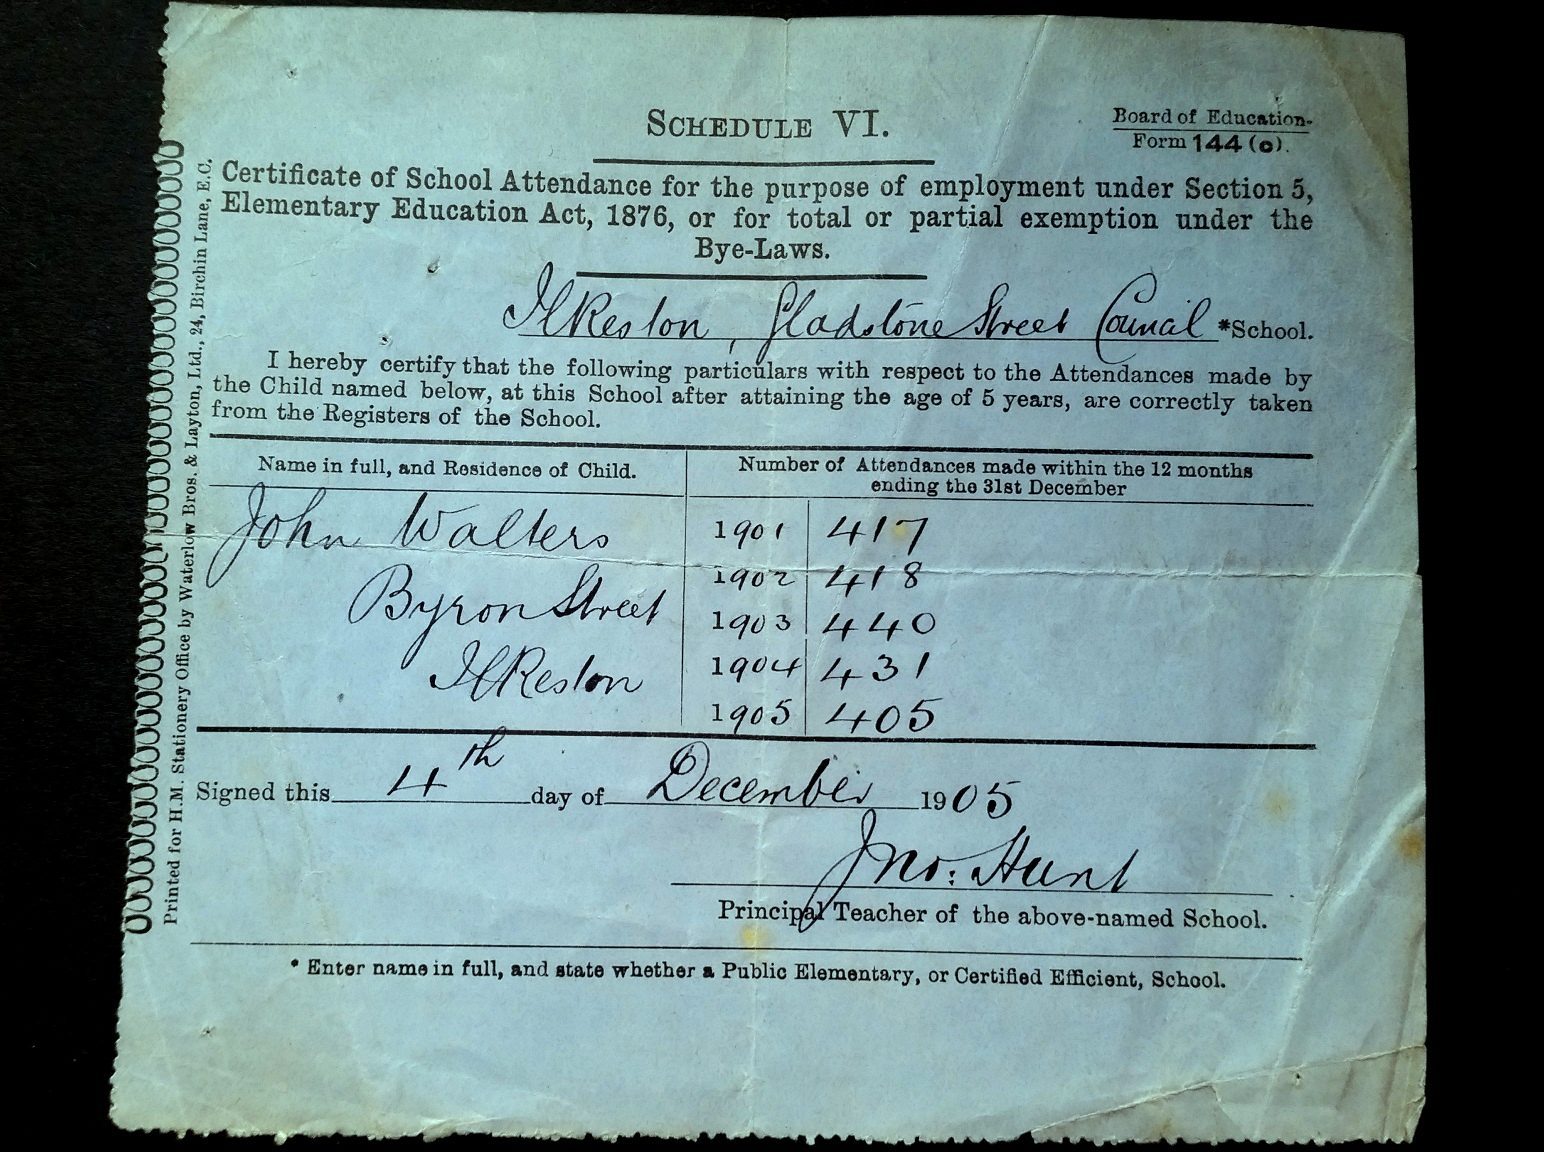 SCHEDULE VI.
Board of Education.
Form 144 (o).
Certificate of School Attendance for the purpose of employment under Section 5,
Elementary Education Act, 1876, or for total or partial exemption under the
Bye-Laws.
Ilkeston, Gladstone Street Council *School.
I hereby certify that the following particulars with respect to the Attendances made by
the Child named below, at this School after attaining the age of 5 years, are correctly taken
from the Registers of the School.
Name in full, and Residence of Child.
Number of Attendances made within the 12 months
ending the 31st December
John Walters
Byron Street
Ilkeston
1901 417
1902 418
1903 440
1904 431
1905 405
Signed this 4th day of December 1905
Jno: Hunt
Principal Teacher of the above-named School.
* Enter name in full, and state whether a Public Elementary, or Certified Efficient, School.
Printed for H.M. Stationery Office by Waterlow Bros. & Layton, Ltd., 24, Birchin Lane, E.C.